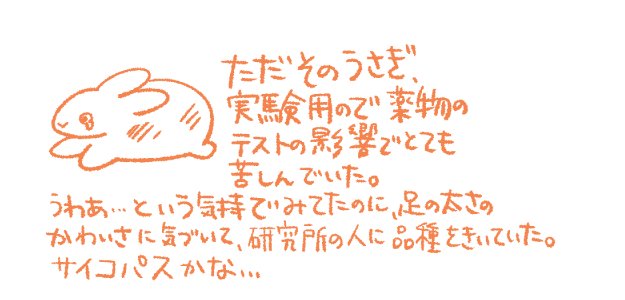 ただそのうさぎ、
実験用ので薬物の
テストの影響でとても
苦しんでいた。
うわあ…という気持でみてたのに、足の太さの
かわいさに気づいて、研究所の人に品種をきいていた。
サイコパスかな…